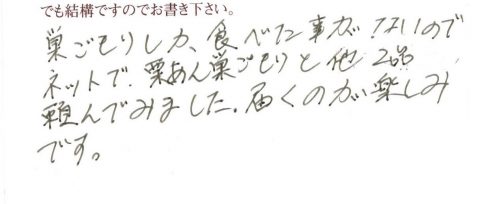 でも結構ですのでお書き下さい。
巣ごもりしか、食べた事がないので
ネットで、栗あん巣ごもりと他2品
頼んでみました。届くのが楽しみ
です。